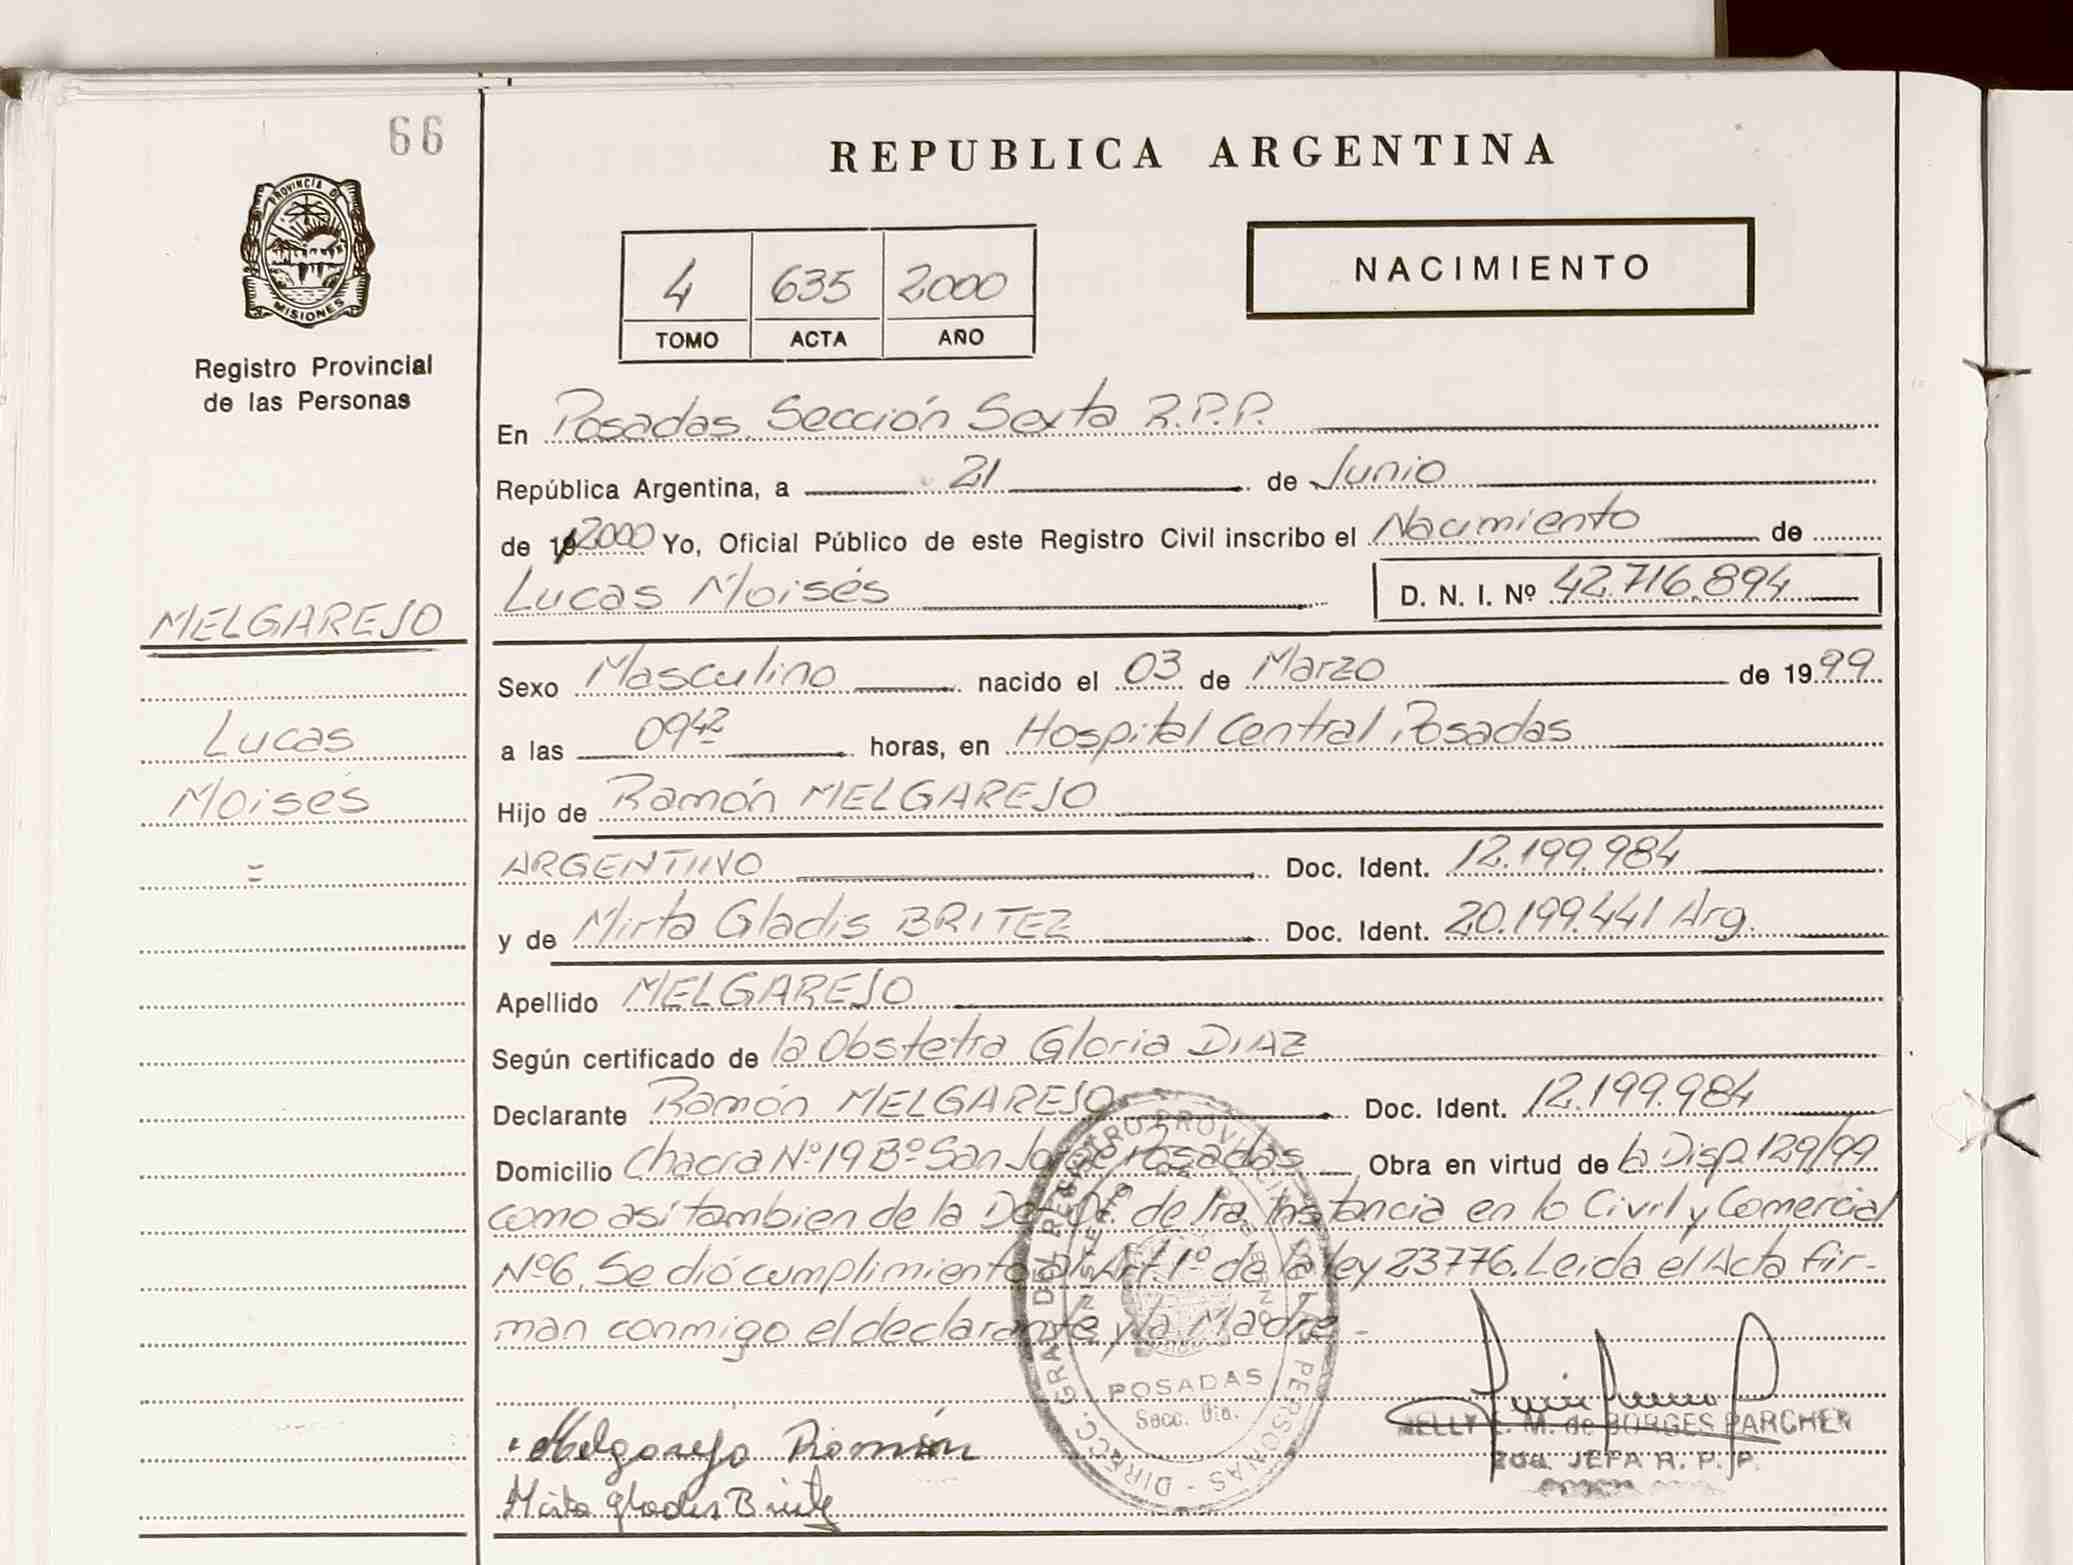 66
REPUBLICA ARGENTINA
PROVINCIA DE
MISIONES
Registro Provincial
de las Personas
4 635 2000
TOMO ACTA AÑO
NACIMIENTO
En Posadas, Sección Sexta R.P.P.
República Argentina, a 21 de Junio
de 19 2000 Yo, Oficial Público de este Registro Civil inscribo el Nacimiento de
Lucas Moisés D. N. I. Nº 42.716.894
MELGAREJO
Sexo Masculino nacido el 03 de Marzo de 1999
Lucas
a las 09 42 horas, en Hospital Central Posadas
Moisés
Hijo de Ramón MELGAREJO
=
ARGENTINO Doc. Ident. 12.199.984
y de Mirta Gladis BRITEZ Doc. Ident. 20.199.441 Arg.
Apellido MELGAREJO
Según certificado de la Obstetra Gloria DIAZ
Declarante Ramón MELGAREJO Doc. Ident. 12.199.984
Domicilio Chacra Nº 19 Bº San Jorge Posadas Obra en virtud de la Disp. 129/99
como así tambien de la Def. Of. de 1ra. Instancia en lo Civil y Comercial
Nº6. Se dió cumplimiento al Art. 1º de la ley 23776. Leida el Acta fir-
man conmigo el declarante y la Madre.-
DIRECC. GRAL DEL REGISTRO PROVINCIAL DE LAS PERSONAS
POSADAS
Secc. 6ta.
Melgarejo Ramón
Mirta Gladis Britez
NELLY E. M. de BORGES PARCHEN
2da. JEFA R. P. P.